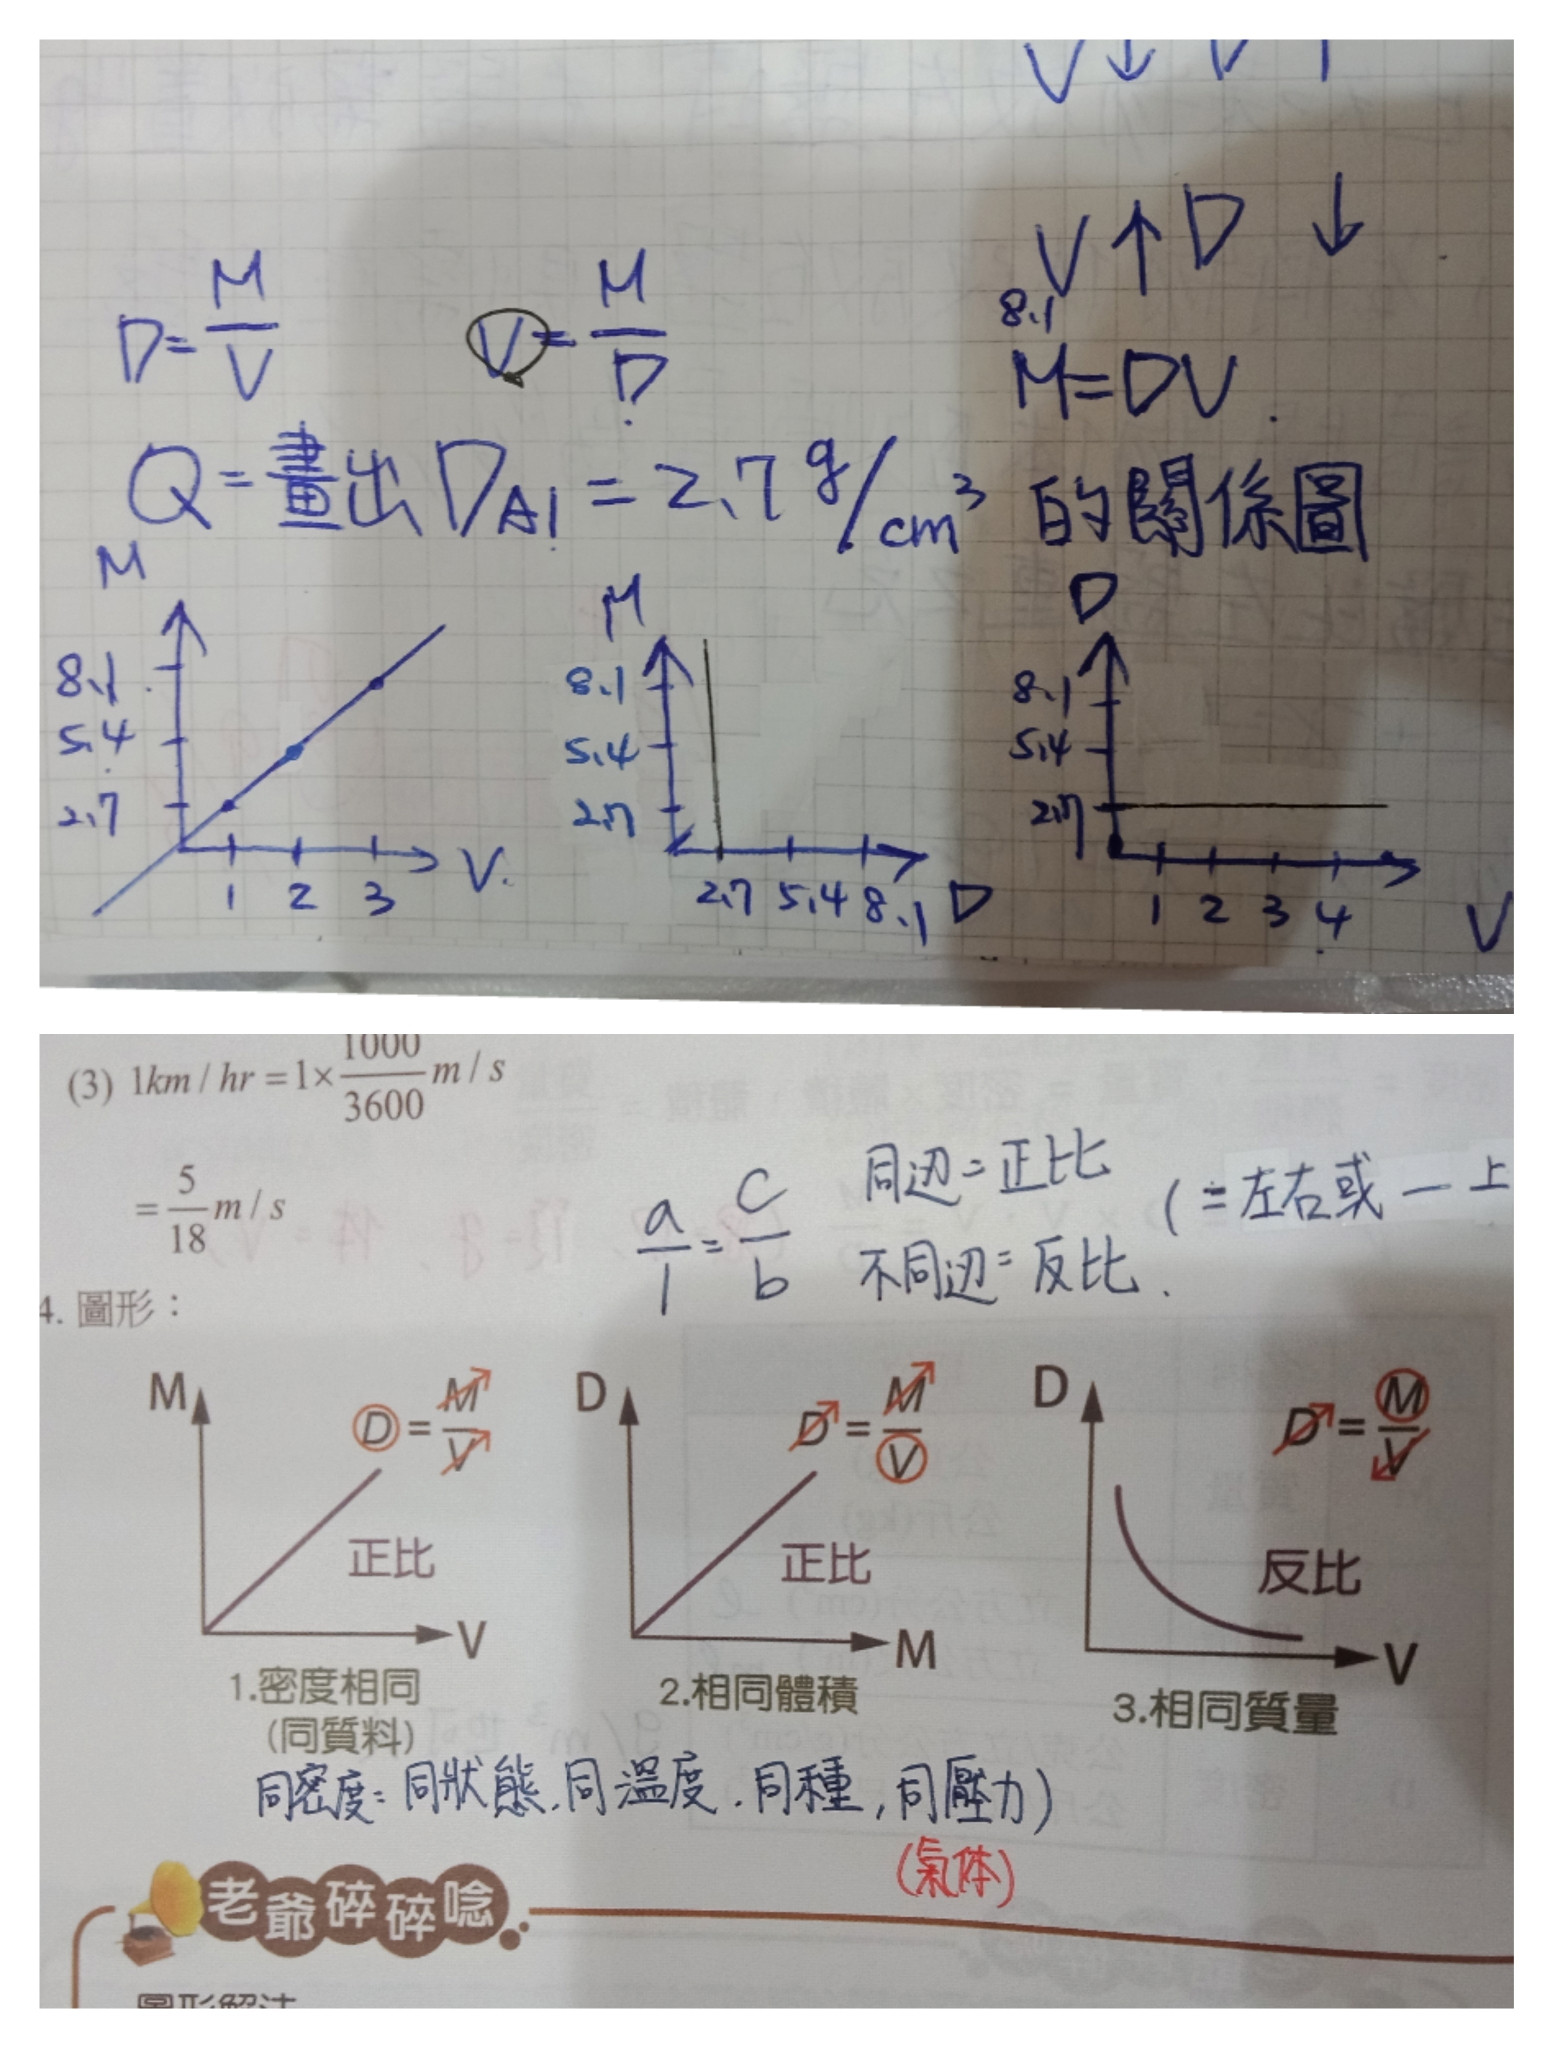 V ↓ D ↑
V ↑ D ↓
D = M/V V = M/D 8.1 M = DV.
Q = 畫出 D_Al = 2.7 g/cm³ 的關係圖
M M D
8.1 8.1 8.1
5.4 5.4 5.4
2.7 2.7 2.7
1 2 3 V. 2.7 5.4 8.1 D 1 2 3 4 V
(3) 1km / hr = 1 × 1000/3600 m / s
= 5/18 m / s
a/1 = c/b 同边=正比 (=左右或一上
不同边=反比.
4. 圖形：
M D = M/V D D = M/V D D = M/V
正比 正比 反比
V M V
1.密度相同 2.相同體積 3.相同質量
(同質料)
同密度:同狀態.同溫度.同種,同壓力)
(氣体)
老爺碎碎唸
圖形解法